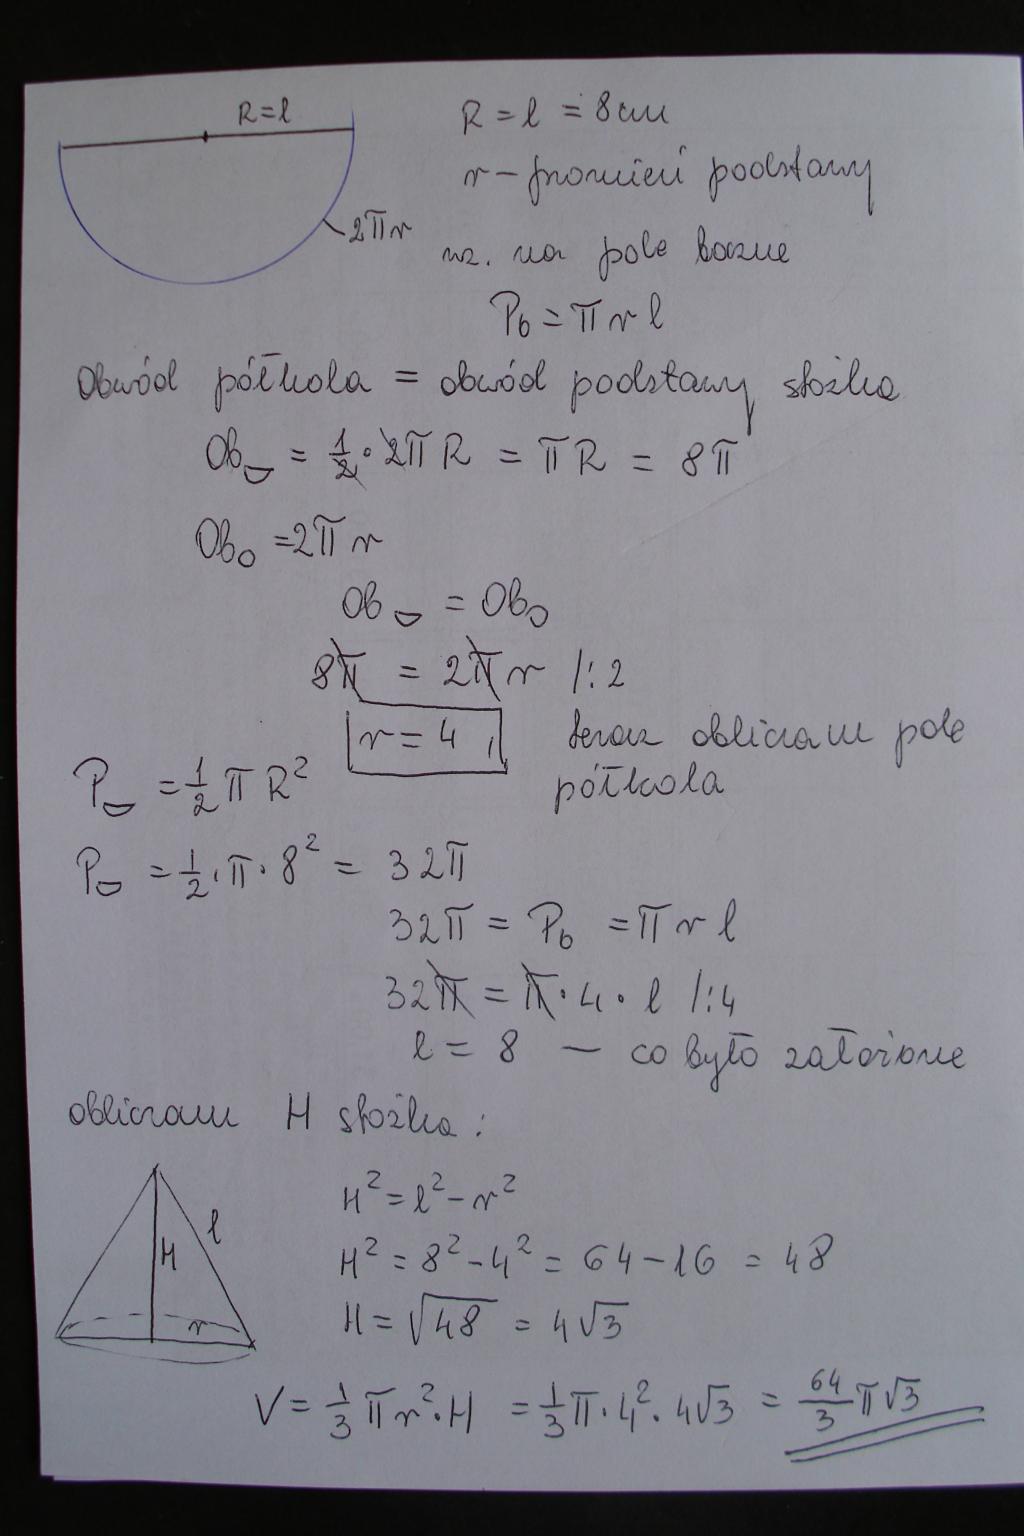 R=l
R = l = 8cm
r - promień podstawy
2πr
wz. na pole boczne
P_b = π r l
Obwód półkola = obwód podstawy stożka
Ob◡ = 1/2 · 2πR = πR = 8π
Ob○ = 2πr
Ob◡ = Ob○
8π = 2πr /:2
r = 4
teraz obliczam pole
półkola
P◡ = 1/2 π R²
P◡ = 1/2 · π · 8² = 32π
32π = P_b = π r l
32π = π · 4 · l /:4
l = 8 — co było założone
obliczam H stożka:
l
H
r
H² = l² - r²
H² = 8² - 4² = 64 - 16 = 48
H = √48 = 4√3
V = 1/3 π r² · H = 1/3 π · 4² · 4√3 = 64/3 π√3